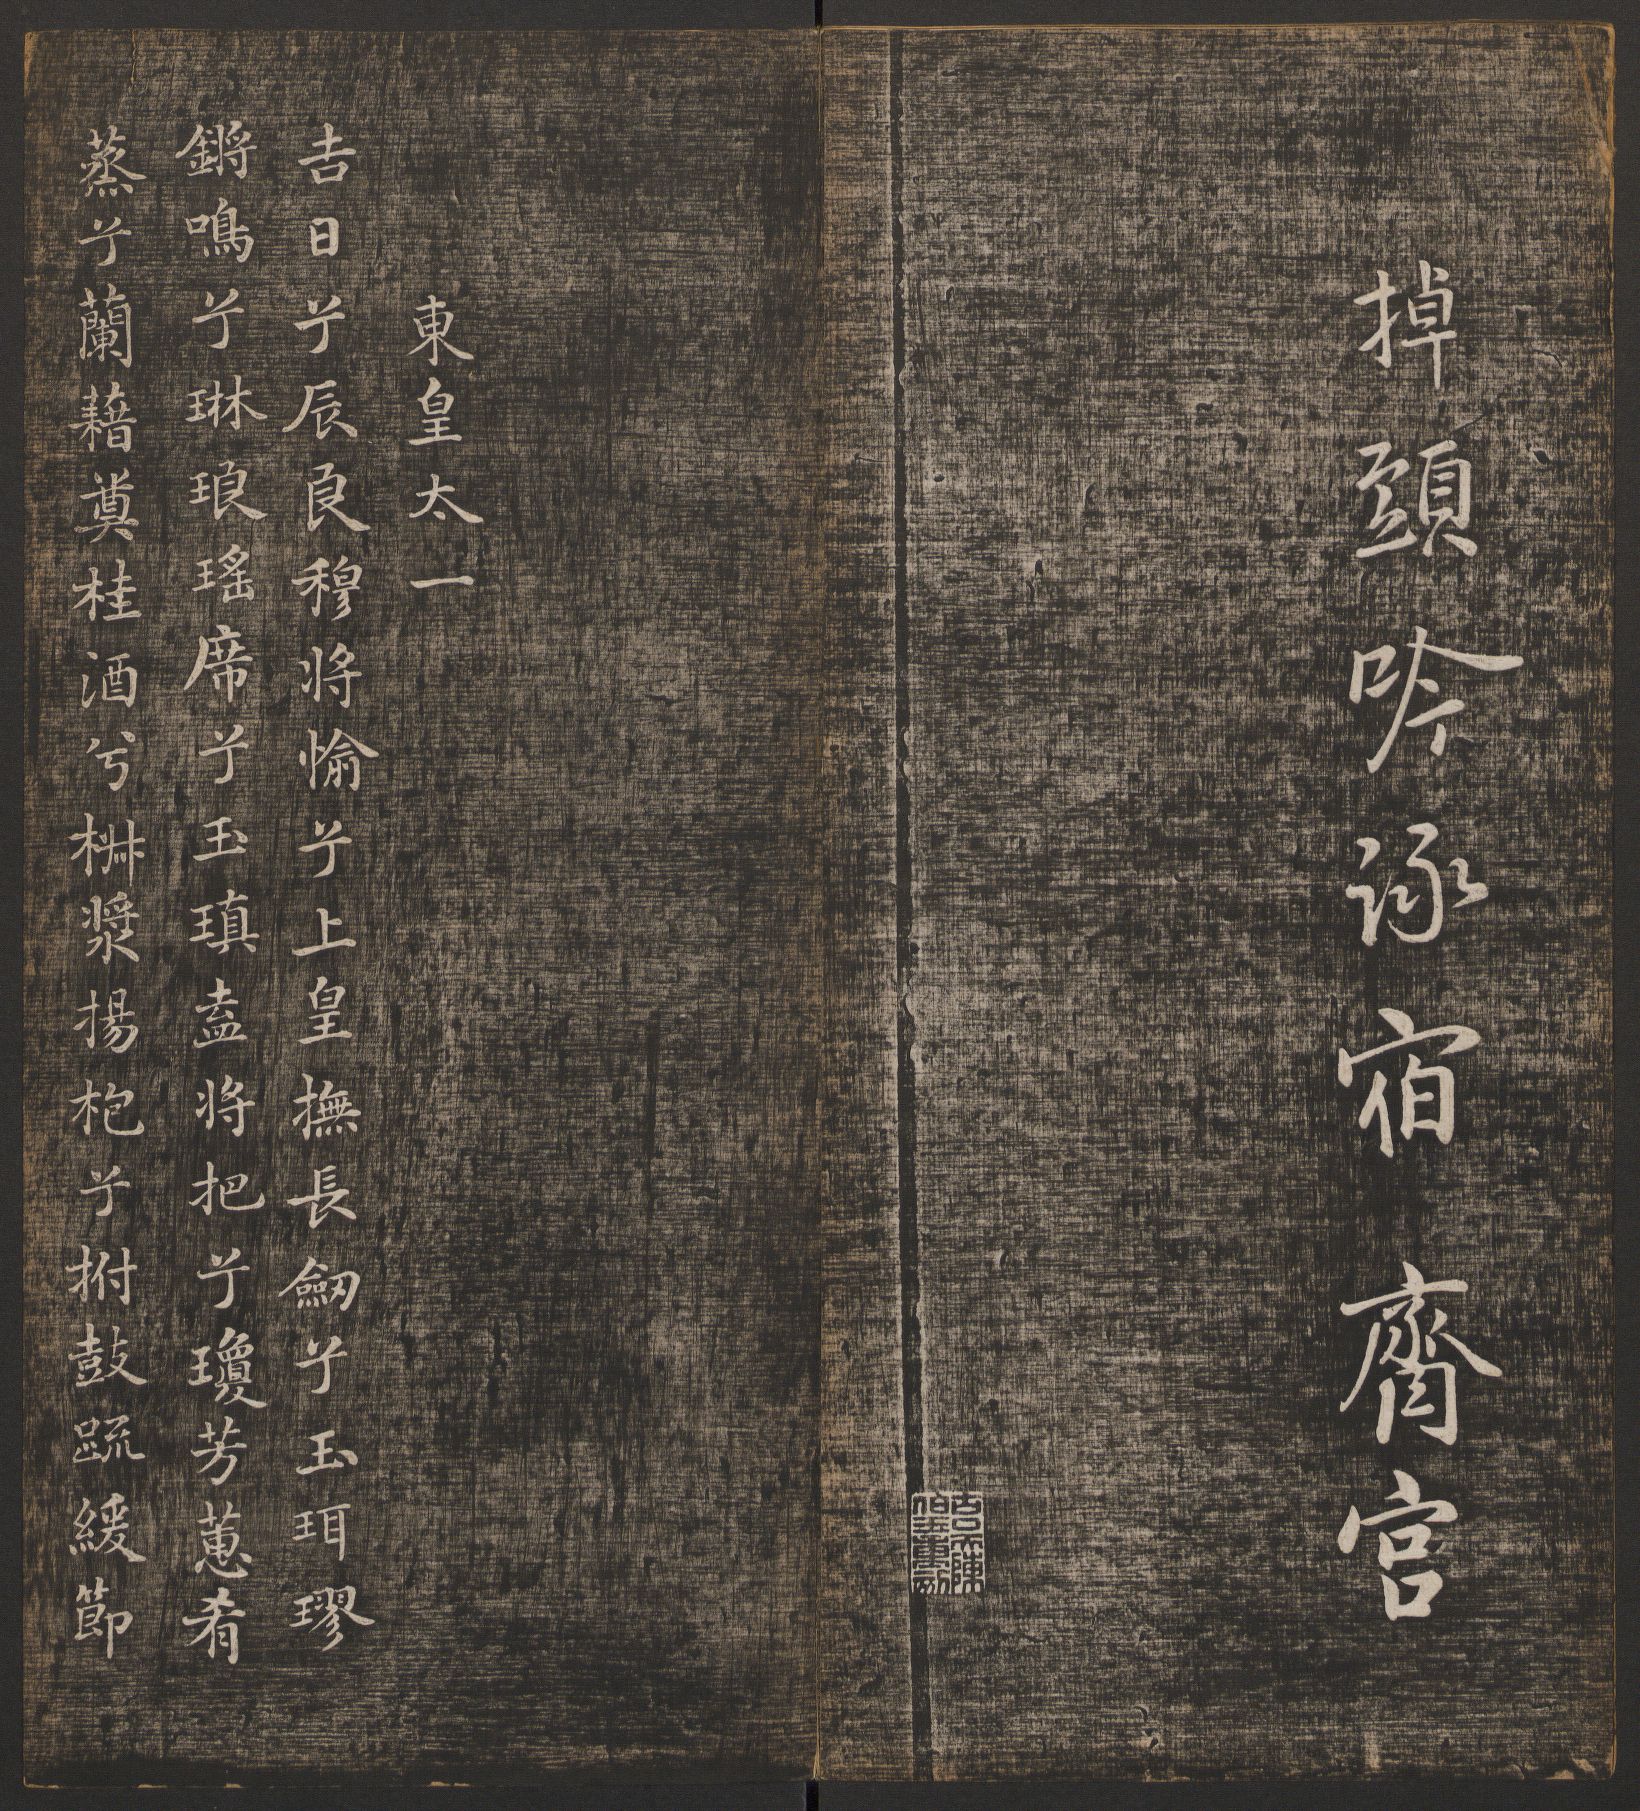 掉頭吟詠宿齋宮
東皇太一
吉日兮辰良穆將愉兮上皇撫長劒兮玉珥璆
鏘鳴兮琳琅瑤席兮玉瑱盍將把兮瓊芳蕙肴
蒸兮蘭藉奠桂酒兮椒漿揚枹兮拊鼓䟽緩節